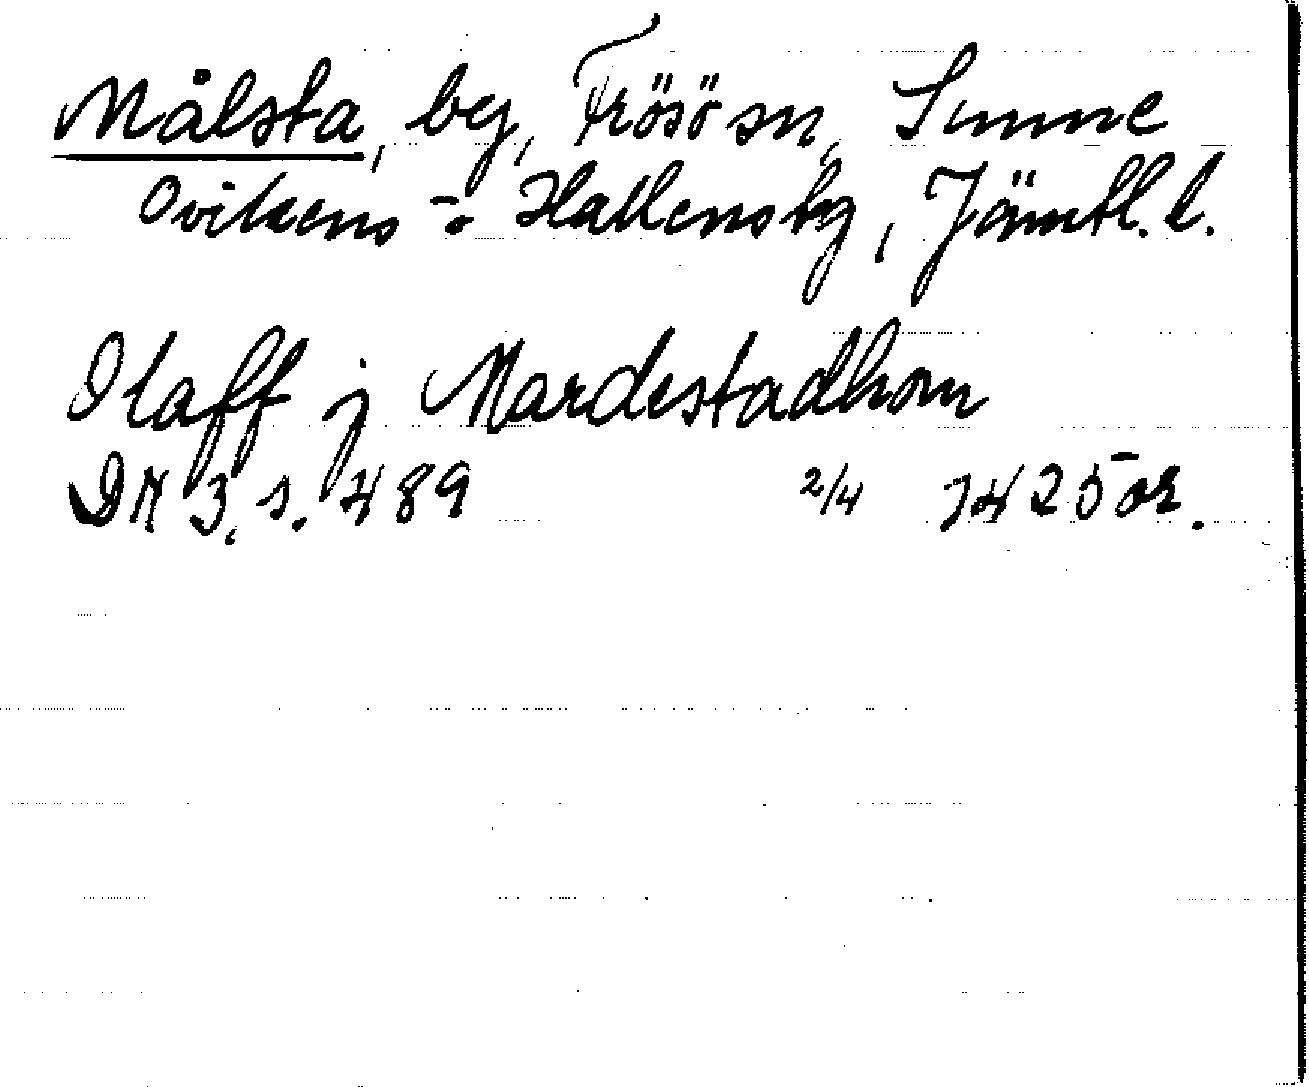 Målsta, by, Frösö sn, Sunne
Ovikens - o Hallens tg, Jämtl. l.
Olaff j Mardestadhom
DN 3, s. 489 2/4 1425 or.